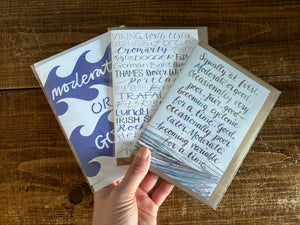 moderate
OR
GO
VIKING North Utsire
Cromarty
German Bight
THAMES Dover Wight
Portland
TRAFAL
Lundy
IRISH S
Rock
Usually at first.
Moderate or good,
Occasionally very
poor. Fair, good,
becoming cyclonic
for a time. Good,
occasionally poor
later. Moderate,
becoming variable
for a time.